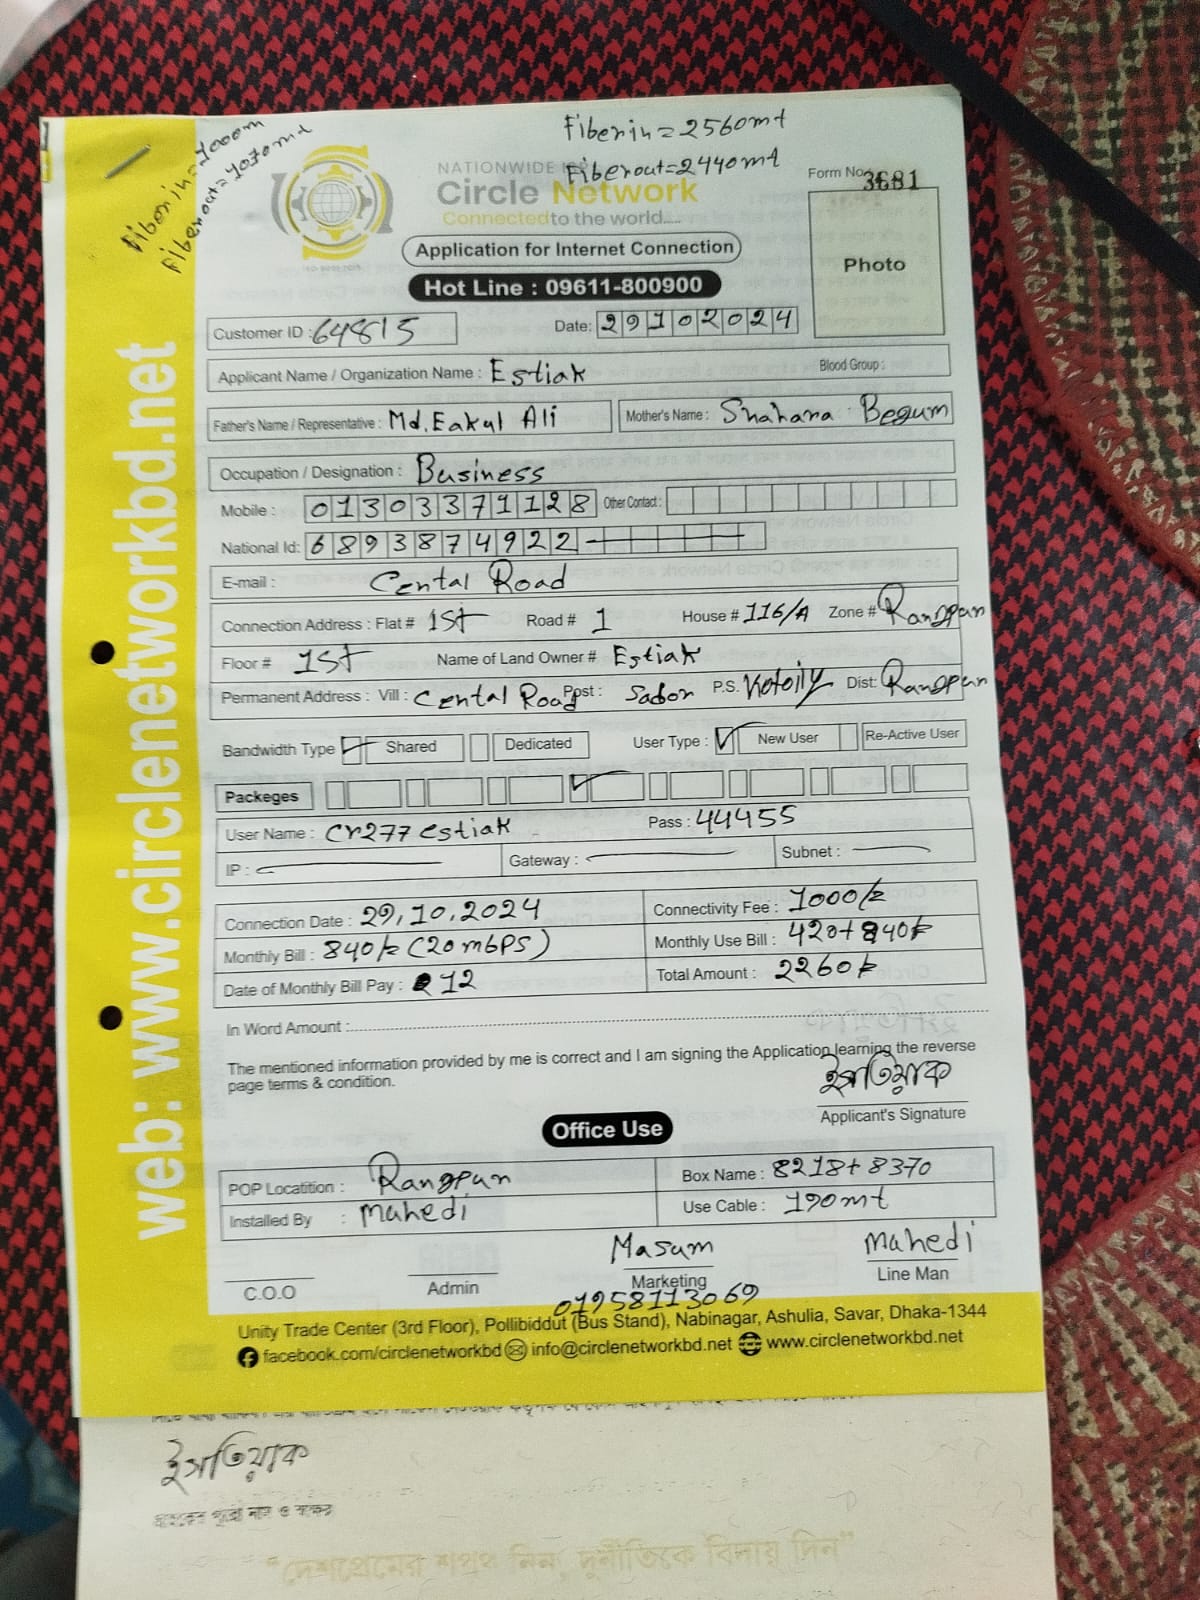 Fiberin=1000m
Fiberout=1070md
Fiberin=2560mt
Fiberout=2440mt
NATIONWIDE ISP
Circle Network
Connected to the world.....
Form No. 3681
Application for Internet Connection
Photo
Hot Line : 09611-800900
Customer ID : 64815
Date: 29102024
Applicant Name / Organization Name : Estiak
Blood Group :
Father's Name / Representative : Md. Eakul Ali
Mother's Name : Shahara Begum
Occupation / Designation : Business
Mobile : 01303371128
Other Contact :
National Id: 6893874922
E-mail : Cental Road
Connection Address : Flat # 1st Road # 1 House # 116/A Zone # Rangpur
Floor # 1st Name of Land Owner # Estiak
Permanent Address : Vill : Cental Road Post : Sador P.S. Kotoily Dist: Rangpur
Bandwidth Type Shared Dedicated User Type : New User Re-Active User
Packeges
User Name : Cr277estiak Pass : 44455
IP : Gateway : Subnet :
Connection Date : 29,10,2024 Connectivity Fee : 1000/=
Monthly Bill : 840/= (20mbps) Monthly Use Bill : 420+840/=
Date of Monthly Bill Pay : 12 Total Amount : 2260/=
In Word Amount :
The mentioned information provided by me is correct and I am signing the Application learning the reverse
page terms & condition.
ইসতিয়াক
Applicant's Signature
Office Use
POP Locatition : Rangpur Box Name : 8218+8370
Installed By : Mahedi Use Cable : 190mt
Masum Mahedi
C.O.O Admin Marketing Line Man
01958113069
Unity Trade Center (3rd Floor), Pollibiddut (Bus Stand), Nabinagar, Ashulia, Savar, Dhaka-1344
facebook.com/circlenetworkbd info@circlenetworkbd.net www.circlenetworkbd.net
web: www.circlenetworkbd.net
ইসতিয়াক
গ্রাহকের পুরো নাম ও স্বাক্ষর
"দেশপ্রেমের শপথ নিন, দুর্নীতিকে বিদায় দিন"